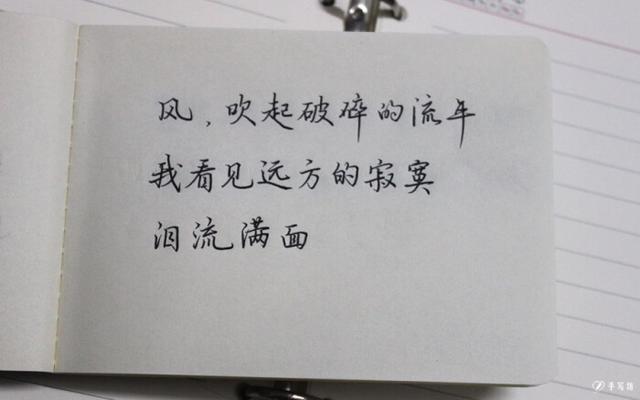 风，吹起破碎的流年
我看见远方的寂寞
泪流满面
手写馆